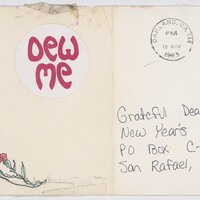 Dew
me
OAKLAND, CA
PM
NOV
1983
Grateful Dea
New Year's
PO Box C-
San Rafael,